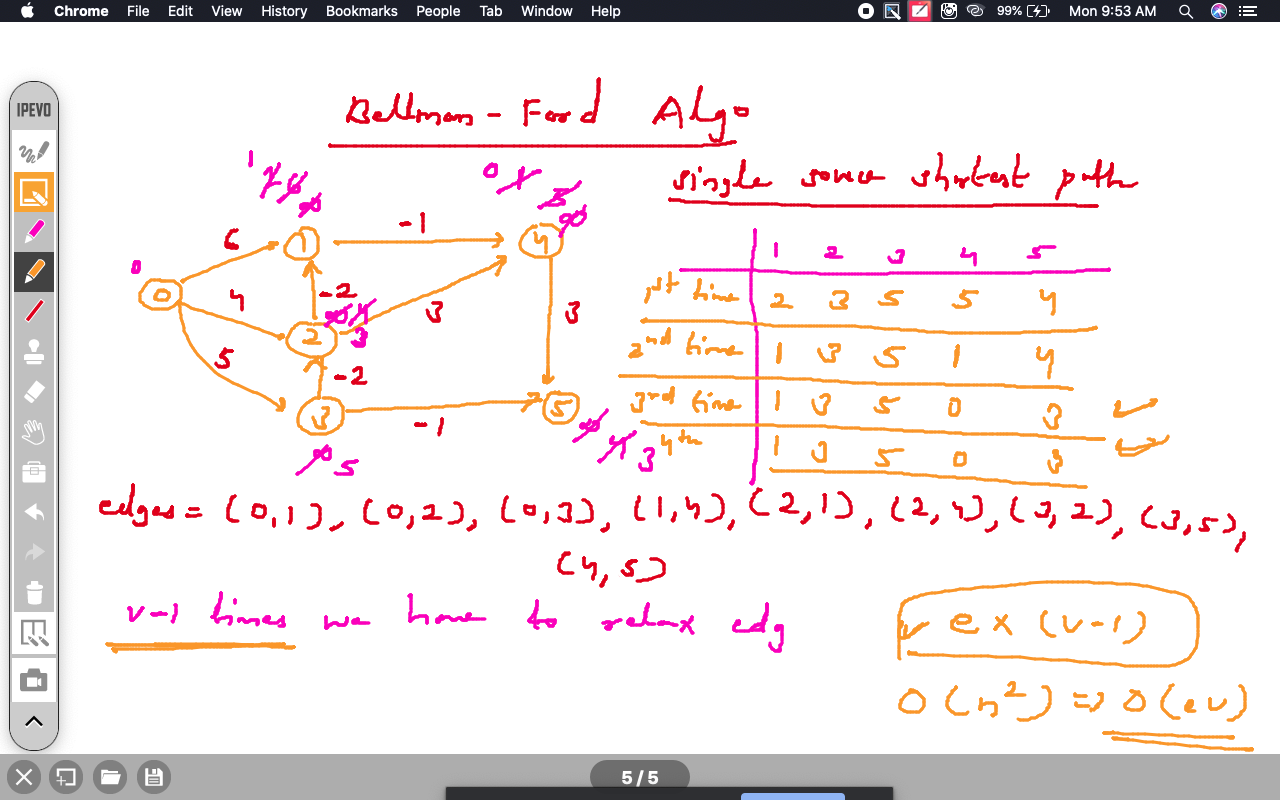 Chrome File Edit View History Bookmarks People Tab Window Help 99% Mon 9:53 AM
IPEVO
Bellman - Ford Algo
single source shortest path
1 2 6 ∞
0 1 5 ∞
6 -1
1 4
0
0
4 -2 3 3
∞ 4
2 3
5 -2
3 -1 5
∞ 5
∞ 4 3
1 2 3 4 5
1st time 2 3 5 5 4
2nd time 1 3 5 1 4
3rd time 1 3 5 0 3
4th 1 3 5 0 3
edges = (0,1), (0,2), (0,3), (1,4), (2,1), (2,4), (3,2), (3,5),
(4,5)
v-1 times we have to relax edg
e x (v-1)
O(n²) => O(ev)
5 / 5